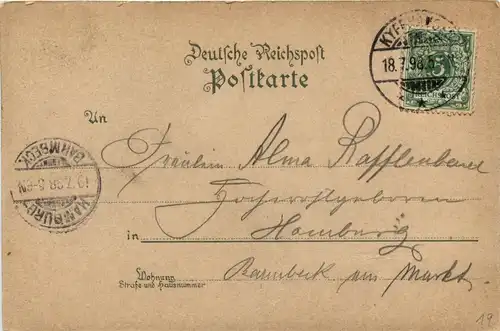 Deutsche Reichspost
Postkarte
KYFF
18.7.98.5
5
REICHSPOST
An
Fräulein Alma Rafflenbeul
Hochwohlgeboren
in Hamburg
Barmbeck am Markt
Wohnung
Straße und Hausnummer
HAMBURG
19.7.98.5-6N
BARMBECK
19